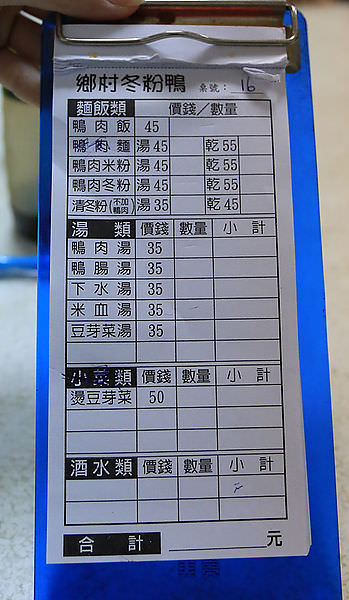 鄉村冬粉鴨 桌號：16
麵飯類 價錢／數量
鴨肉飯 45
鴨肉麵 湯45 乾55
鴨肉米粉 湯45 乾55
鴨肉冬粉 湯45 乾55
清冬粉(不加鴨肉) 湯35 乾45
湯類 價錢 數量 小計
鴨肉湯 35
鴨腸湯 35
下水湯 35
米血湯 35
豆芽菜湯 35
小菜類 價錢 數量 小計
燙豆芽菜 50
酒水類 價錢 數量 小計
合計 元